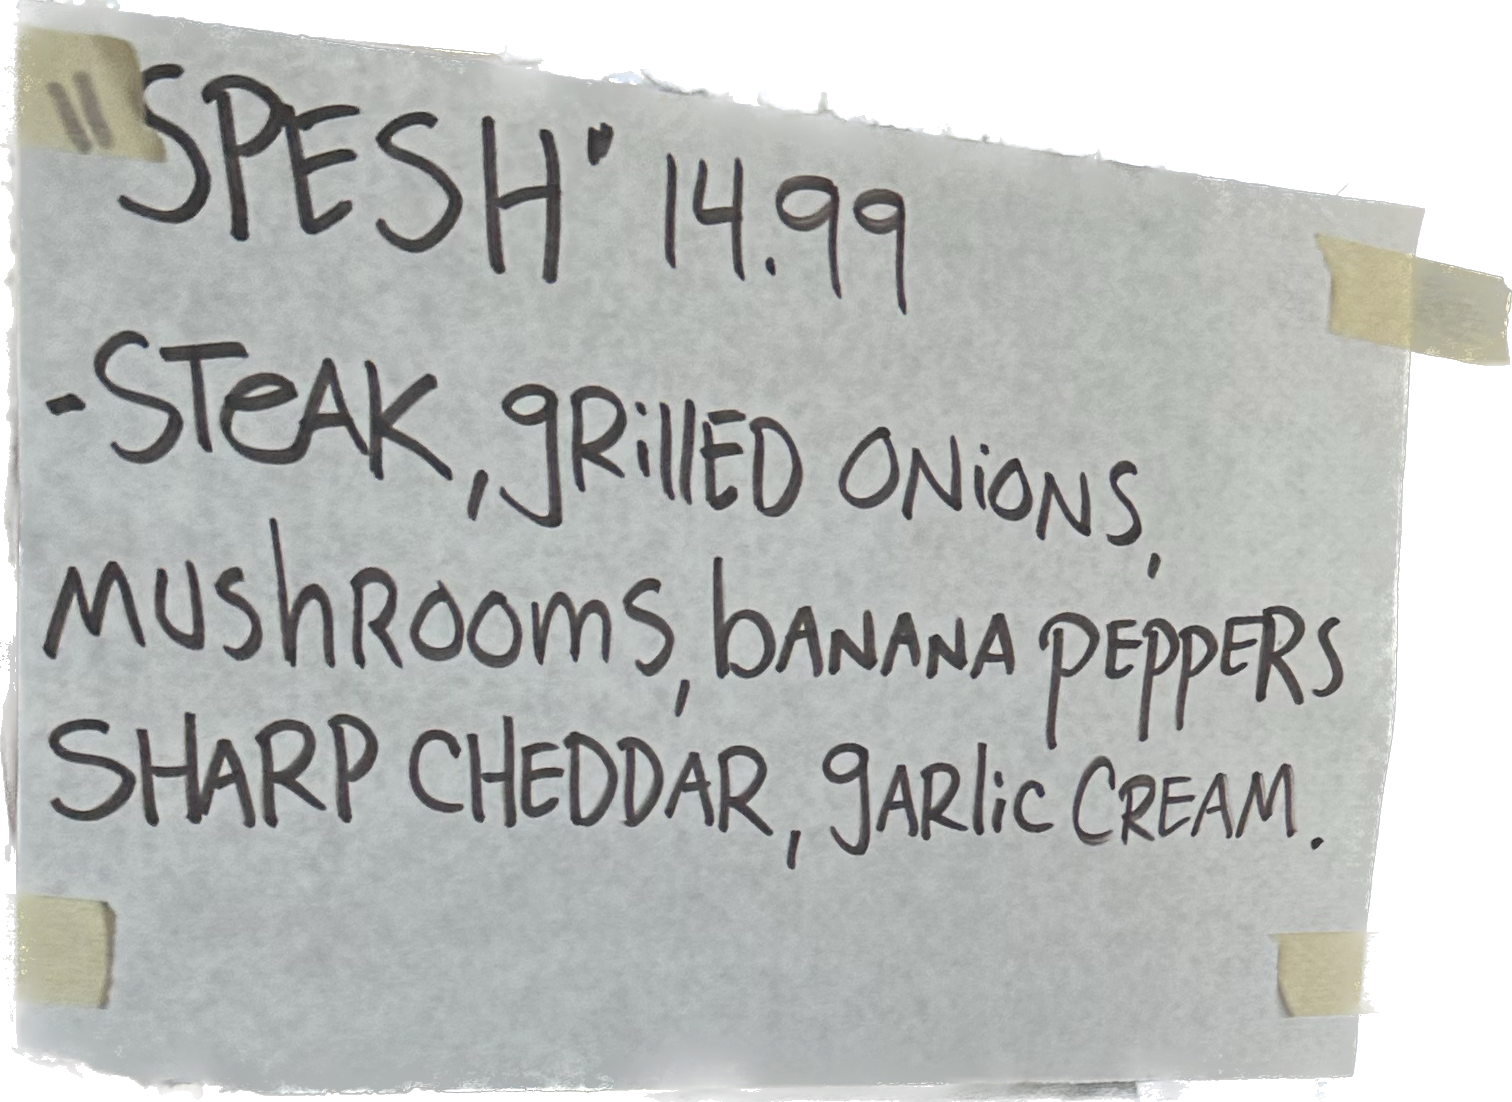 "SPESH" 14.99
-STeAK, gRillED ONiONS,
MUShROOmS, bANANA pEppERS
SHARP CHEDDAR, gARlic CREAM.